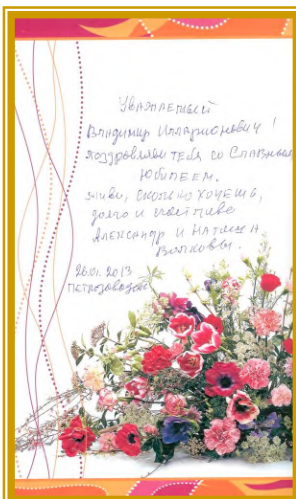 Уважаемый
Владимир Илларионович!
поздравляем тебя со Славным
Юбилеем.
живи, сколько хочешь,
долго и счастливо
Александр и Наташа
Волковы.
26.XI.2013
Петрозаводск